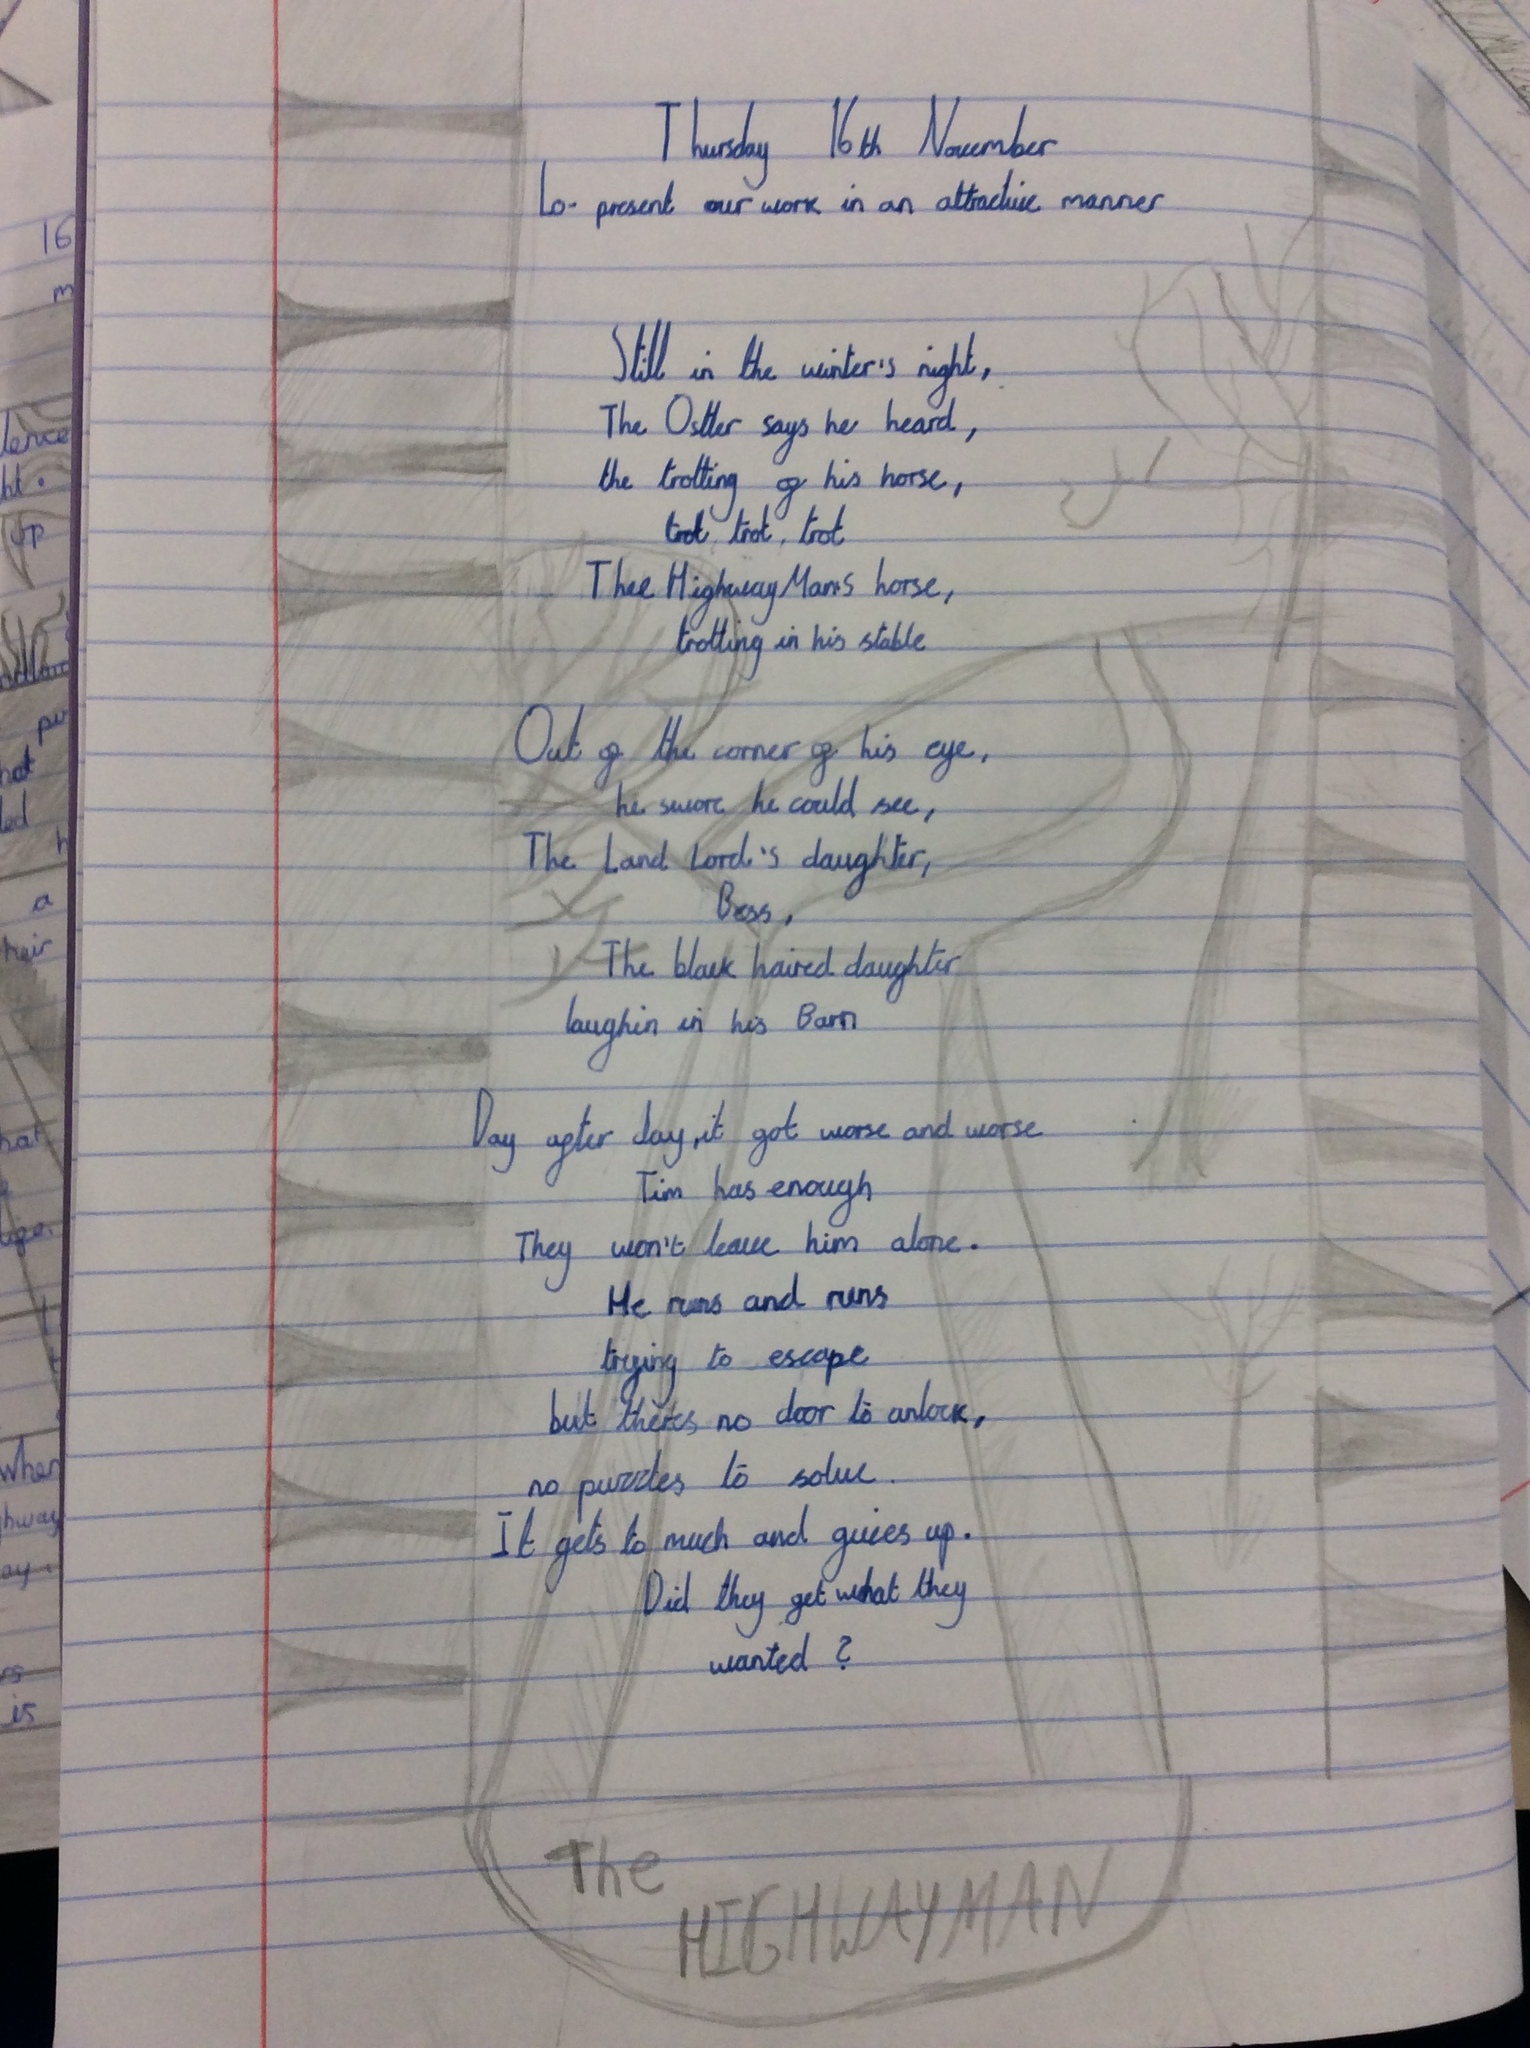 Thursday 16th November
Lo- present our work in an attractive manner
Still in the winter's night,
The Ostler says he heard,
the trotting of his horse,
trot, trot, trot
Thee HighwayMan's horse,
trotting in his stable
Out of the corner of his eye,
he swore he could see,
The Land Lord's daughter,
Bess,
The black haired daughter
laughin in his Barn
Day after day, it got worse and worse
Tim has enough
They won't leave him alone.
He runs and runs
trying to escape
but theres no door to unlock,
no puzzles to solve.
It gets to much and gives up.
Did they get what they
wanted?
The
HIGHWAYMAN